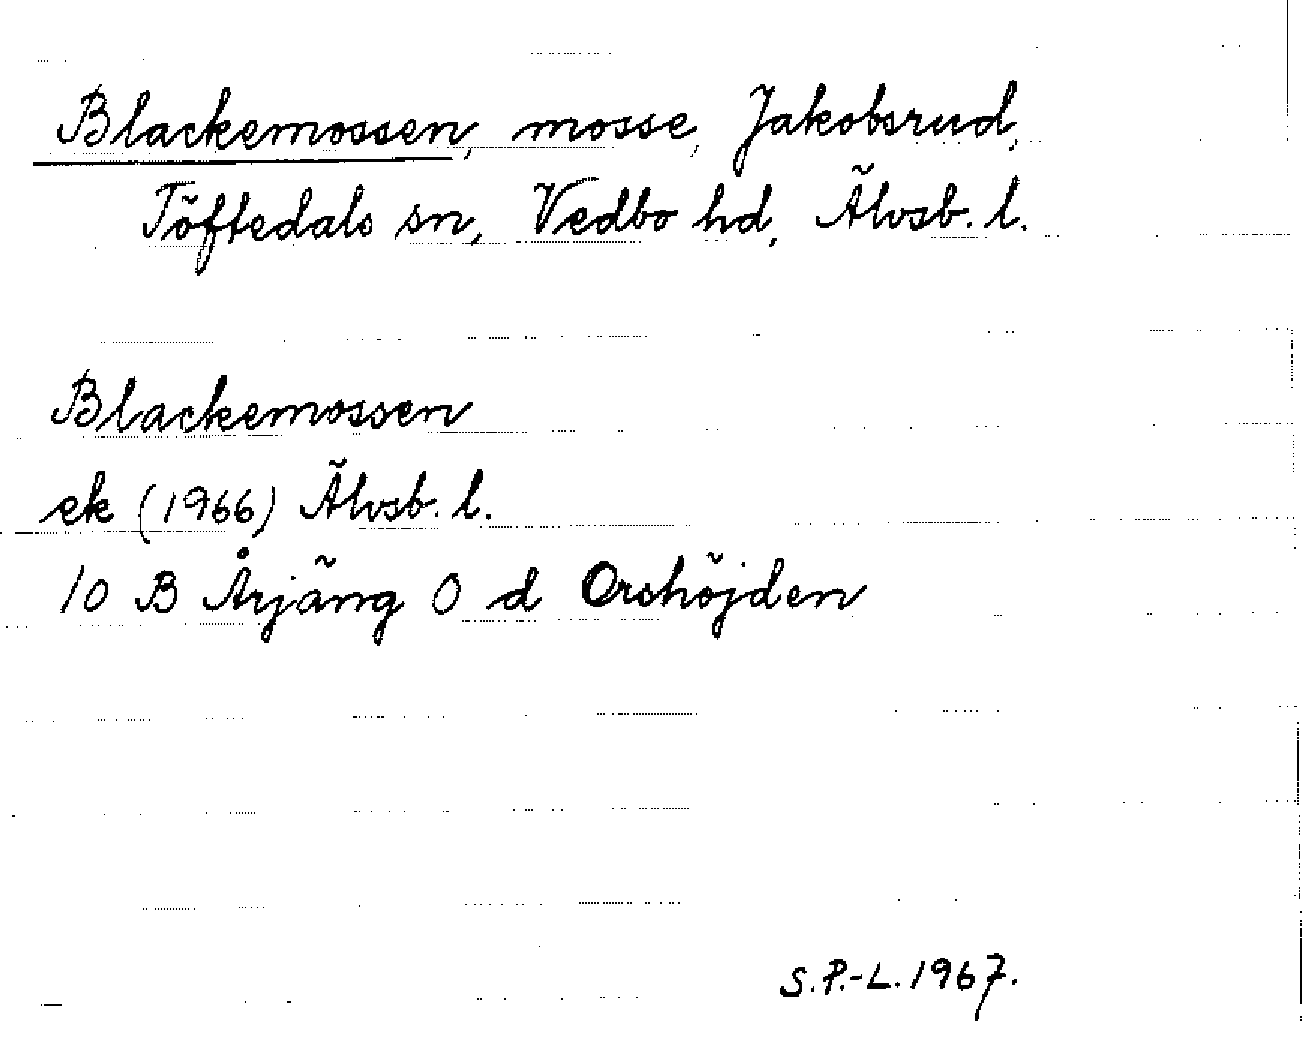 Blackemossen, mosse, Jakobsrud,
Töftedals sn, Vedbo hd, Älvsb. l.
Blackemossen
ek (1966) Älvsb. l.
10 B Årjäng O d Orshöjden
S.P.-L. 1967.